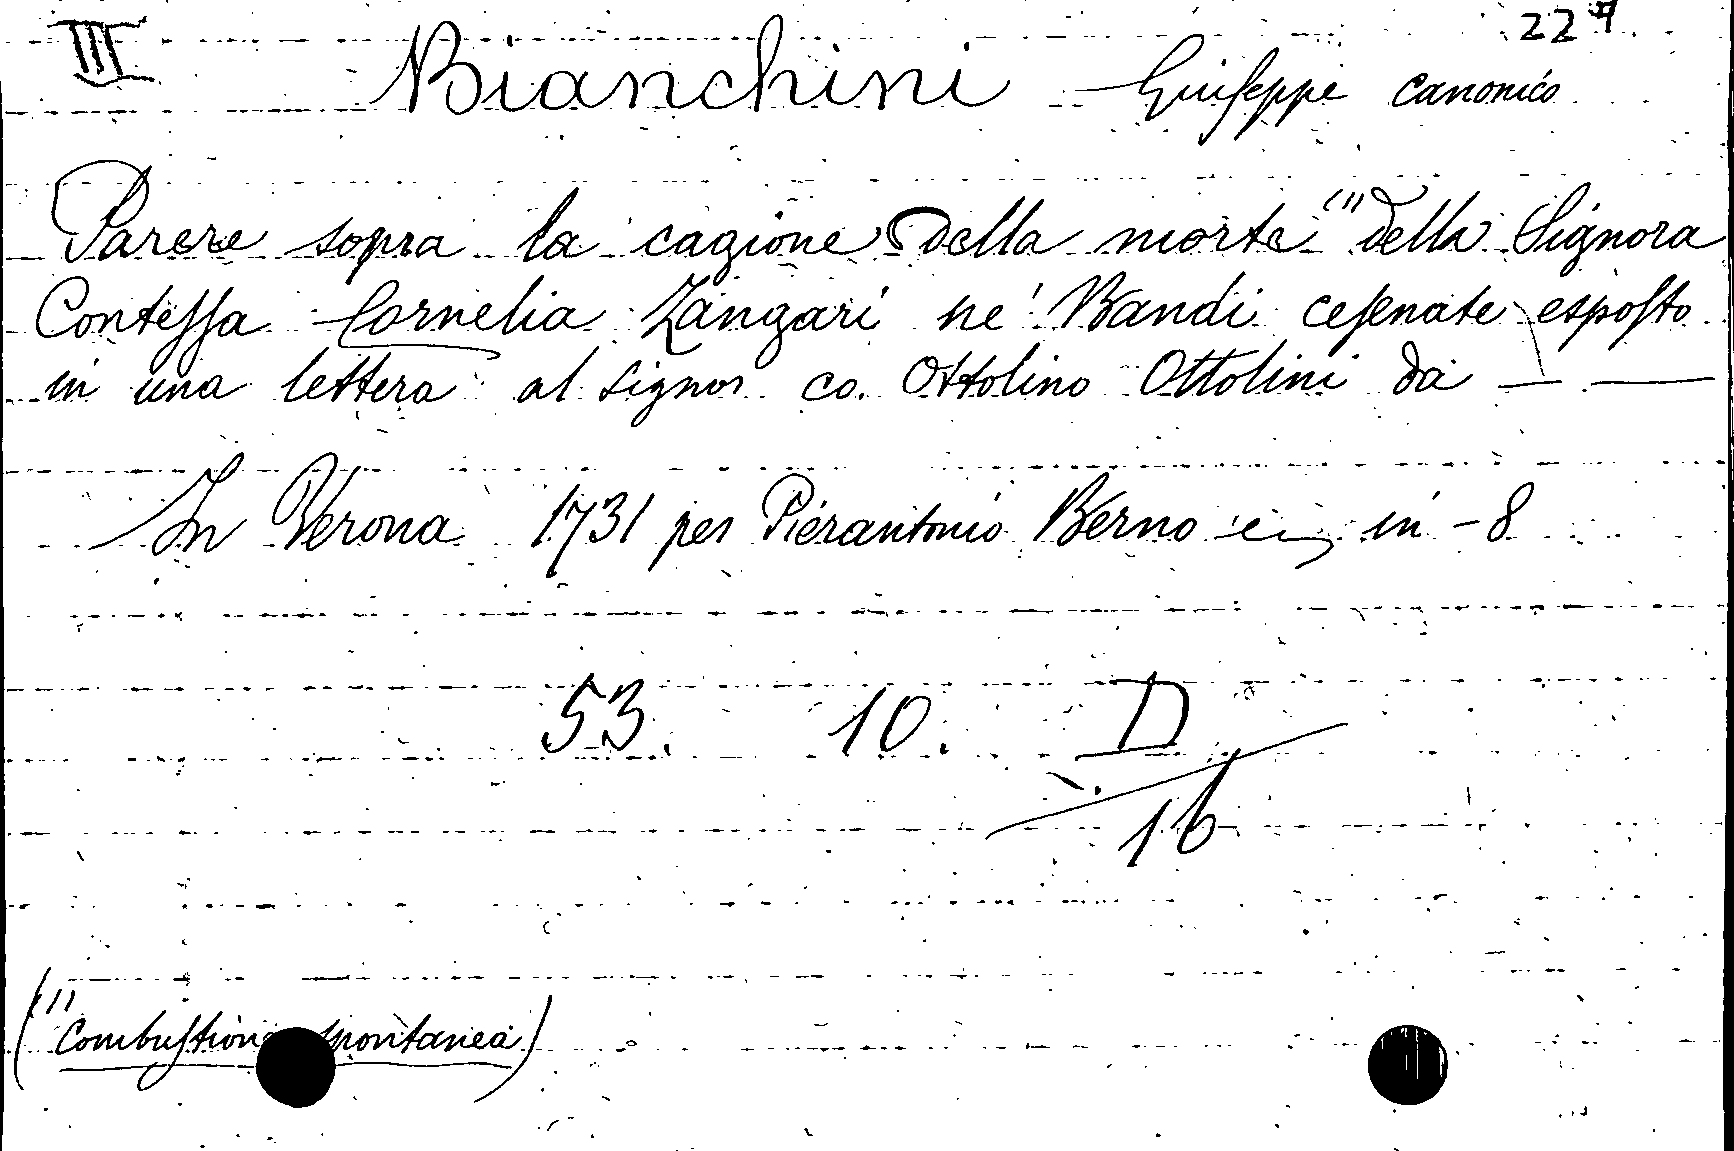 III 227
Bianchini Giuseppe canonico
Parere sopra la cagione della morte (1) della Signora
Contessa Cornelia Zangari ne' Bandi cesenate esposto
in una lettera al signor co. Ottolino Ottolini da — —
In Verona 1731 per Pierantonio Berno in - 8
53. 10. D
16
(1)
(Combustione spontanea)